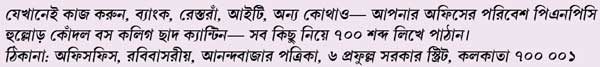 যেখানেই কাজ করুন, ব্যাংক, রেস্তরাঁ, আইটি, অন্য কোথাও— আপনার অফিসের পরিবেশ পিএনপিসি
হুল্লোড় কোঁদল বস কলিগ ছাদ ক্যান্টিন— সব কিছু নিয়ে ৭০০ শব্দে লিখে পাঠান।
ঠিকানা: অফিসফিস, রবিবাসরীয়, আনন্দবাজার পত্রিকা, ৬ প্রফুল্ল সরকার স্ট্রিট, কলকাতা ৭০০ ০০১